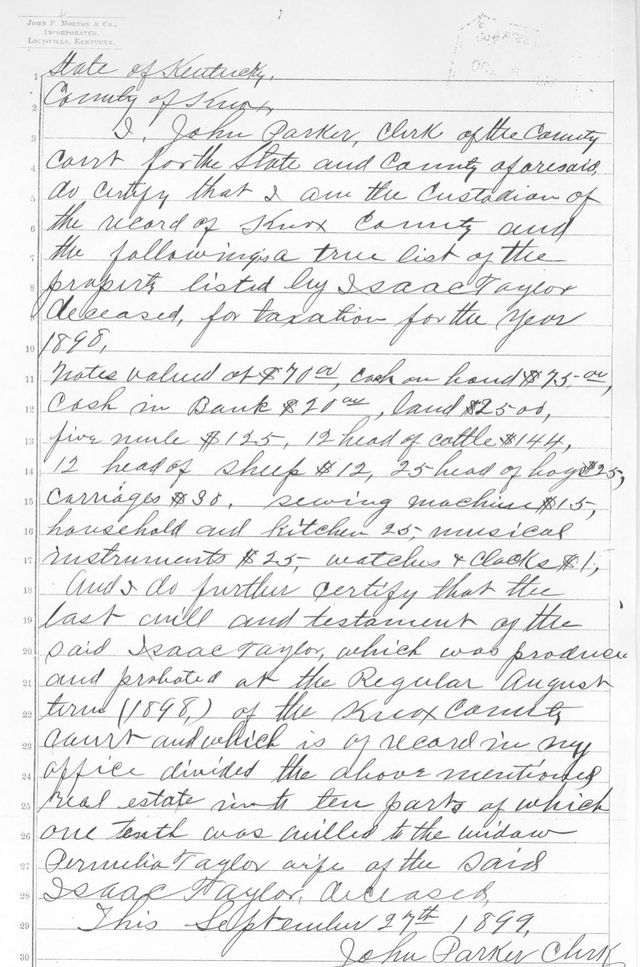 John P. Morton & Co.,
Incorporated,
Louisville, Kentucky.
1 State of Kentucky,
2 County of Knox
3 I, John Parker, Clerk of the County
4 court for the State and County aforesaid,
5 do certify that I am the Custodian of
6 the record of Knox County and
7 the following is a true list of the
8 property listed by Isaac Taylor
9 deceased, for taxation for the year
10 1898,
11 Notes valued at $70 00, cash on hand $75.00,
12 Cash in Bank $20 00, land $2500,
13 five mule $125, 12 head of cattle $144,
14 12 head of sheep $12, 25 head of hogs $25,
15 Carriages $30. sewing machine $15,
16 household and kitchen 25, musical
17 instruments $25, watches & clocks $1,
18 And I do further certify that the
19 last will and testament of the
20 said Isaac Taylor, which was produce
21 and probated at the Regular August
22 term (1898,) of the Knox County
23 Court and which is of record in my
24 office divided the above mentioned
25 real estate into ten parts of which
26 one tenth was willed to the widow
27 Permelia Taylor wife of the said
28 Isaac Taylor, deceased,
29 This September 27th 1899,
30 John Parker Clerk